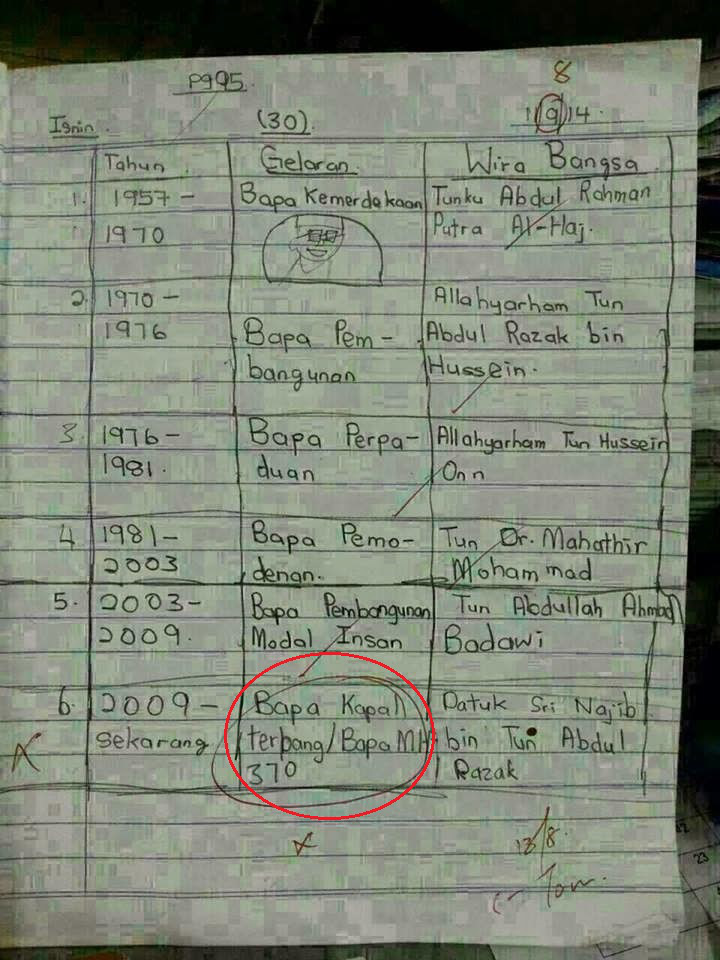 Pg95
8
Isnin. (30). 1 9 14
Tahun. Gelaran. Wira Bangsa
1. 1957 - Bapa Kemerdekaan Tunku Abdul Rahman
1970 Putra Al-Haj.
2. 1970 - Allahyarham Tun
1976 Bapa Pem- Abdul Razak bin
bangunan Hussein.
3. 1976 - Bapa Perpa- Allahyarham Tun Hussein
1981. duan Onn
4 1981 - Bapa Pemo- Tun Dr. Mahathir
2003 denan. Mohammad
5. 2003 - Bapa Pembangunan Tun Abdullah Ahmad
2009. Modal Insan Badawi
6. 2009 - Bapa Kapal Datuk Sri Najib
sekarang terbang/Bapa MH bin Tun Abdul
370 Razak
13/8.
23